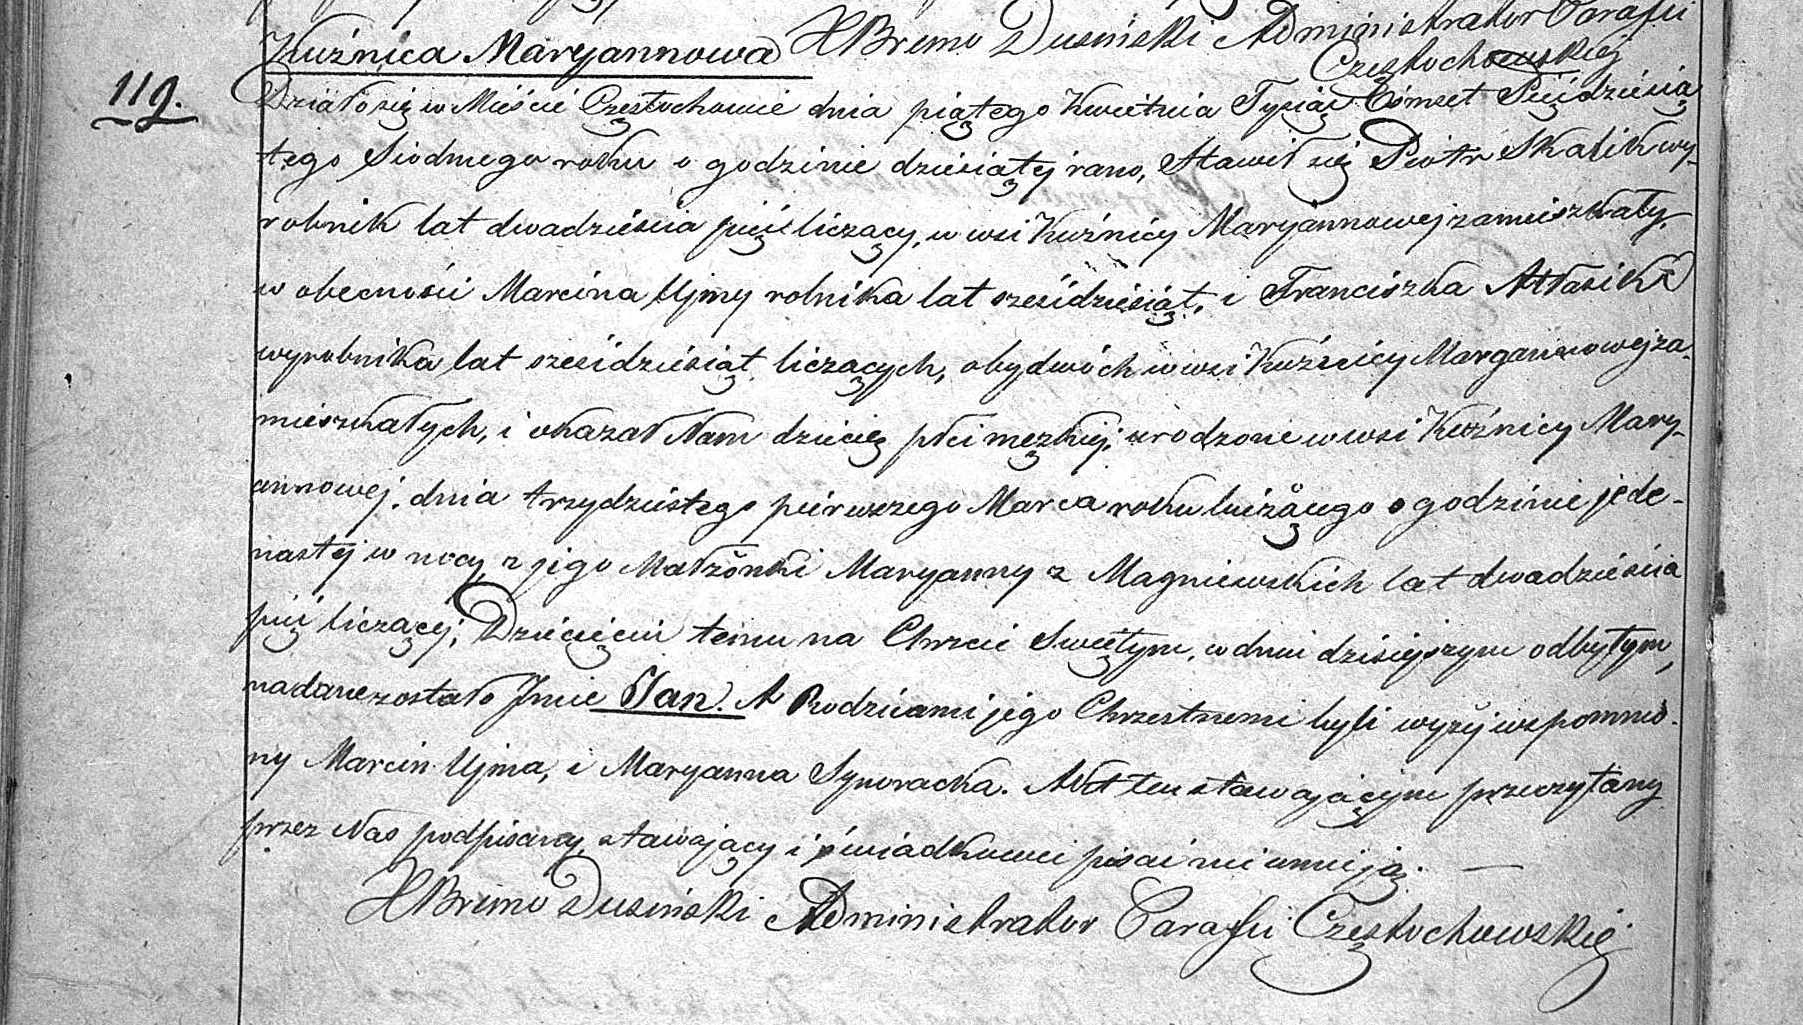 Kuźnica Maryannowa XBruno Dusiński Administrator Parafii
Częstochowskiej
119.
Działo się w Mieście Częstochowie dnia piątego Kwietnia Tysiąc Ośmset Pięćdziesią
tego Siodmego roku o godzinie dziesiątej rano, Stawił się Piotr Skalik wy-
robnik lat dwadzieścia pięć liczący, w wsi Kuźnicy Maryannowej zamieszkały,
w obecności Marcina Ujmy rolnika lat sześćdziesiąt, i Franciszka Attasika
wyrobnika lat sześćdziesiąt liczących, obydwóch w wsi Kuźnicy Maryannowej za-
mieszkałych, i okazał Nam dziecię płci męzkiej, urodzone w wsi Kuźnicy Mary-
annowej, dnia trzydziestego pierwszego Marca roku bieżącego o godzinie jede-
nastej w nocy z jego Małżonki Maryanny z Magniewskich lat dwadzieścia
pięć liczącej; Dziecięciu temu na Chrzcie Swiętym, w dniu dzisiejszym odbytym,
nadane zostało Jmie Jan. A Rodzicami jego Chrzestnemi byli wyżej wspomnio-
ny Marcin Ujma, i Maryanna Synoracka. Akt ten stawającym przeczytany
przez Nas podpisany, stawający i świadkowie pisać nie umieją. —
XBruno Dusiński Administrator Parafii Częstochowskiej